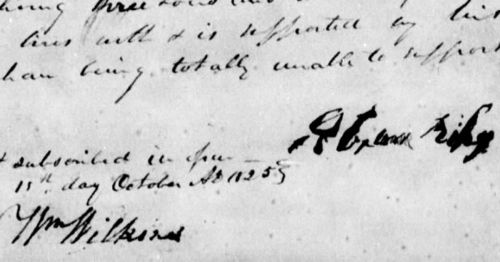 being three sons and
lives with & is supported by his
than being totally unable to support
Riley
& subscribed in open
11th day October AD 1825
Wm Wilkins